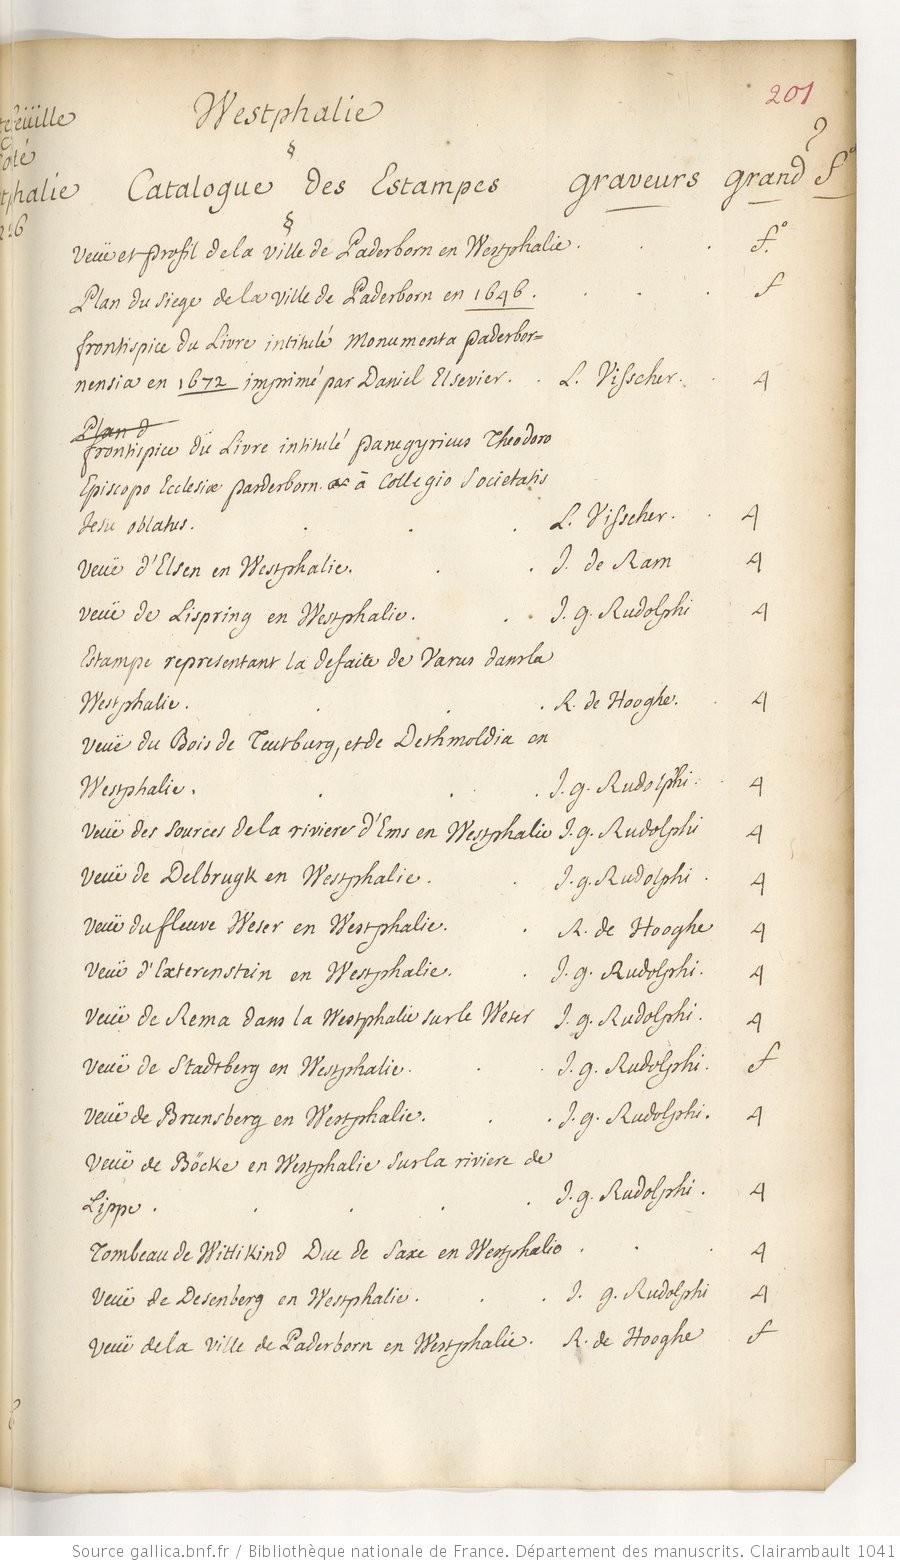 201
Westphalie
§
Catalogue des Estampes graveurs grand f°
§
Veüe et profil de la ville de Paderborn en Westphalie . . . f°
Plan du siege de la ville de Paderborn en 1646 . . . . f
frontispice du Livre intitulé Monumenta paderbor=
nensia en 1672 imprimé par Daniel Elsevier . . L. Visscher . . 4
Plan d
frontispice du Livre intitulé panegyricus Theodoro
Episcopo Ecclesiæ parderborn. a Collegio Societatis
Jesu oblatus . . . . L. Visscher . . 4
Veüe d'Elsen en Westphalie . . . J. de Ram 4
Veüe de Lispring en Westphalie . . . J. g. Rudolphi 4
Estampe representant la defaite de Varus dans la
Westphalie . . . . R. de Hooghe . . 4
Veüe du Bois de Teutburg, et de Dethmoldia en
Westphalie . . . . J. g. Rudolphi . . 4
Veüe des sources de la riviere d'Ems en Westphalie J. g. Rudolphi 4
Veüe de Delbrugk en Westphalie . . J. g. Rudolphi . 4
Veüe du fleuve Weser en Westphalie . . R. de Hooghe 4
Veüe d'Exterenstein en Westphalie . . J. g. Rudolphi . 4
Veüe de Rema dans la Westphalie sur le Weser J. g. Rudolphi . 4
Veüe de Stadtberg en Westphalie . . . J. g. Rudolphi . f
Veüe de Brunsberg en Westphalie . . . J. g. Rudolphi . 4
Veüe de Böcke en Westphalie sur la riviere de
Lippe . . . . . J. g. Rudolphi . 4
Tombeau de Wittikind Duc de Saxe en Westphalie . . . 4
Veüe de Desenberg en Westphalie . . . J. g. Rudolphi 4
Veüe de la ville de Paderborn en Westphalie . R. de Hooghe f
Source gallica.bnf.fr / Bibliothèque nationale de France. Département des manuscrits. Clairambault 1041